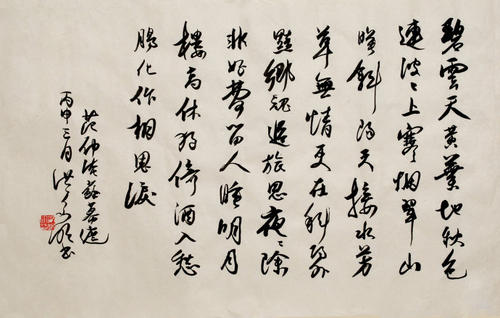 碧雲天黄葉地秋色
連波〻上寒烟翠山
暎斜陽天接水芳
草無情更在斜陽外
黯鄉魂追旅思夜〻除
非好夢留人睡明月
樓高休獨倚酒入愁
腸化作相思淚
范仲淹蘇幕遮
丙申三月洪書